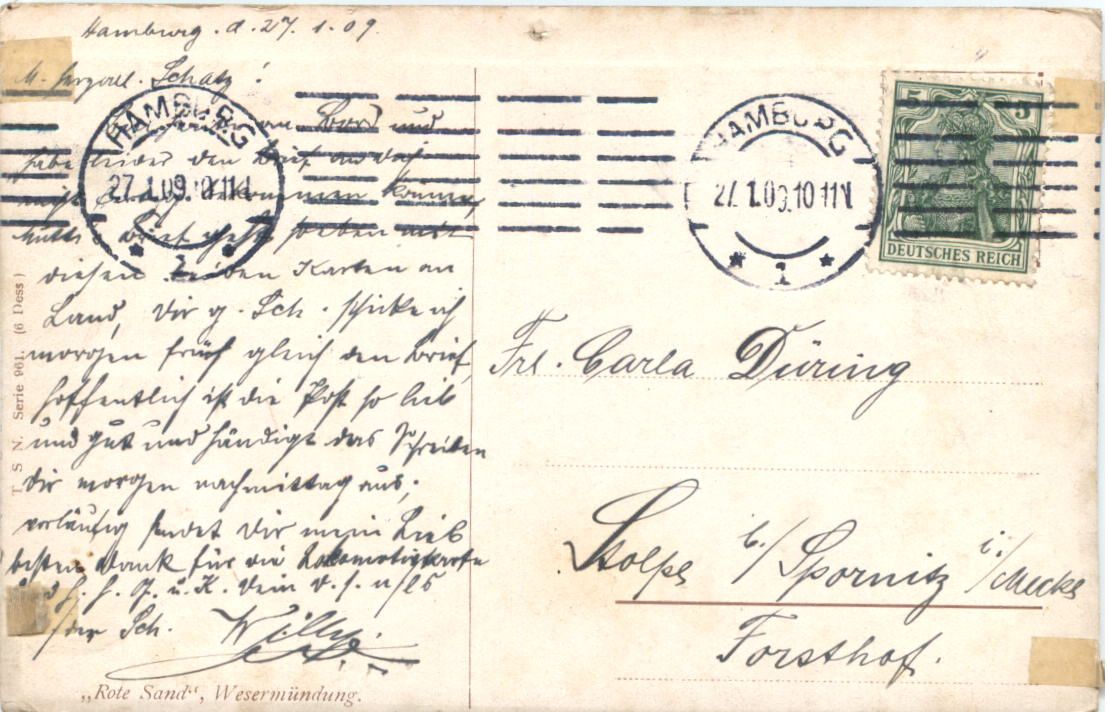 Hamburg. d. 27. 1. 09.
M. herzall. Schatz!
an Bord und
habe leider den Brief an dich
nicht können,
Brief geht soeben mit
diesen beiden Karten an
Land, Dir g. Sch. schicke ich
morgen früh gleich den Brief,
hoffentlich ist die Post so lieb
und gut und händigt das Schreiben
Dir morgen nachmittag aus;
vorläufig sendet Dir mein Lieb
besten Dank für die Lokomotivkarte
h. h. G. u. K. Dein
Sch. Willy.
HAMBURG
27.1.09.10-11V
* 1 *
HAMBURG
27.1.09.10-11V
* 1 *
5 5
DEUTSCHES REICH
Frl. Carla Düring
Stolpe b./Spornitz i./Meckl
Forsthof.
T S N. Serie 961. (6 Dess)
„Rote Sand“, Wesermündung.